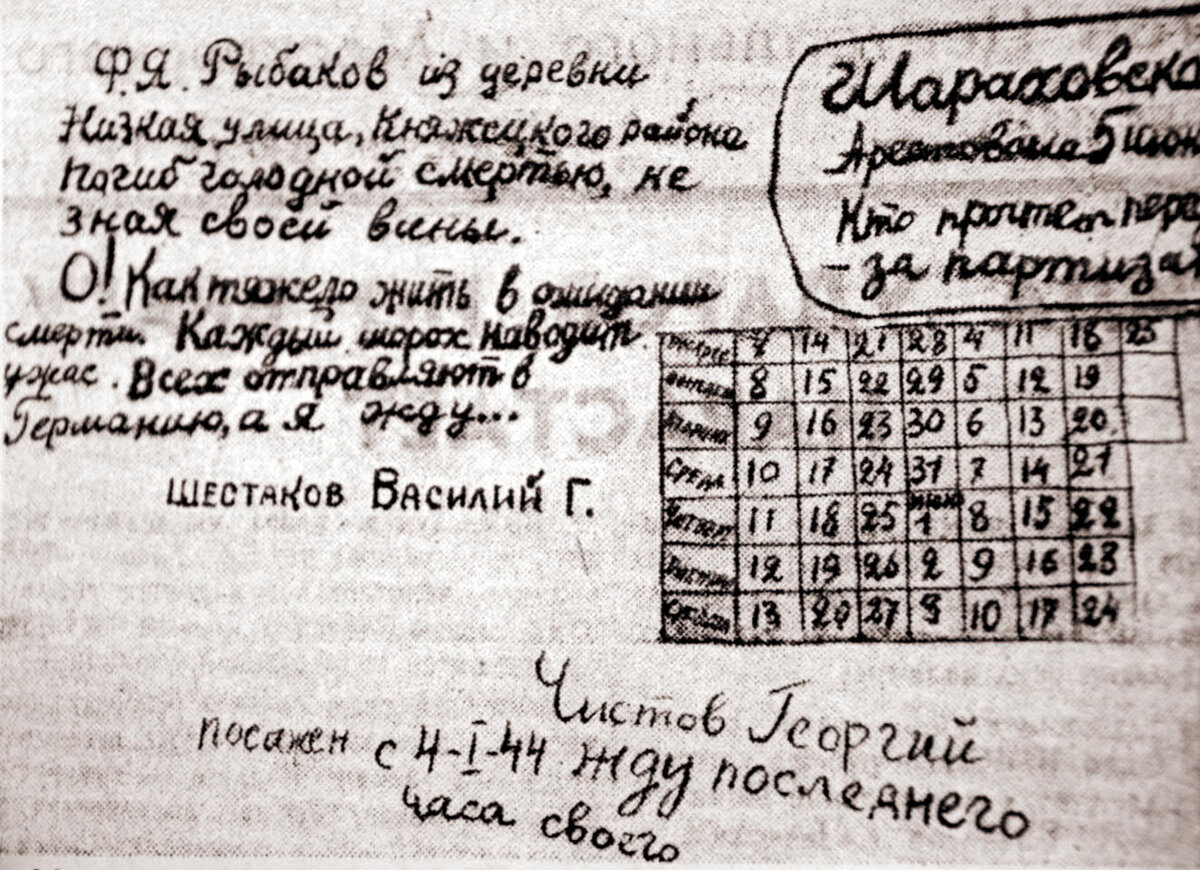 Ф.Я. Рыбаков из деревни
Низкая улица, Княжецкого района
погиб голодной смертью, не
зная своей вины.
О! Как тяжело жить в ожидании
смерти. Каждый шорох наводит
ужас. Всех отправляют в
Германию, а я жду...
Шестаков Василий Г.
Шараховска
Арестована 5 июн
Кто прочтет пере
- за партиза
7 14 21 28 4 11 18 25
8 15 22 29 5 12 19
9 16 23 30 6 13 20
Среда 10 17 24 31 7 14 21
Четверг 11 18 25 июнь 1 8 15 22
Пятница 12 19 26 2 9 16 23
Суббота 13 20 27 3 10 17 24
Чистов Георгий
посажен с 4-I-44 жду последнего
часа своего